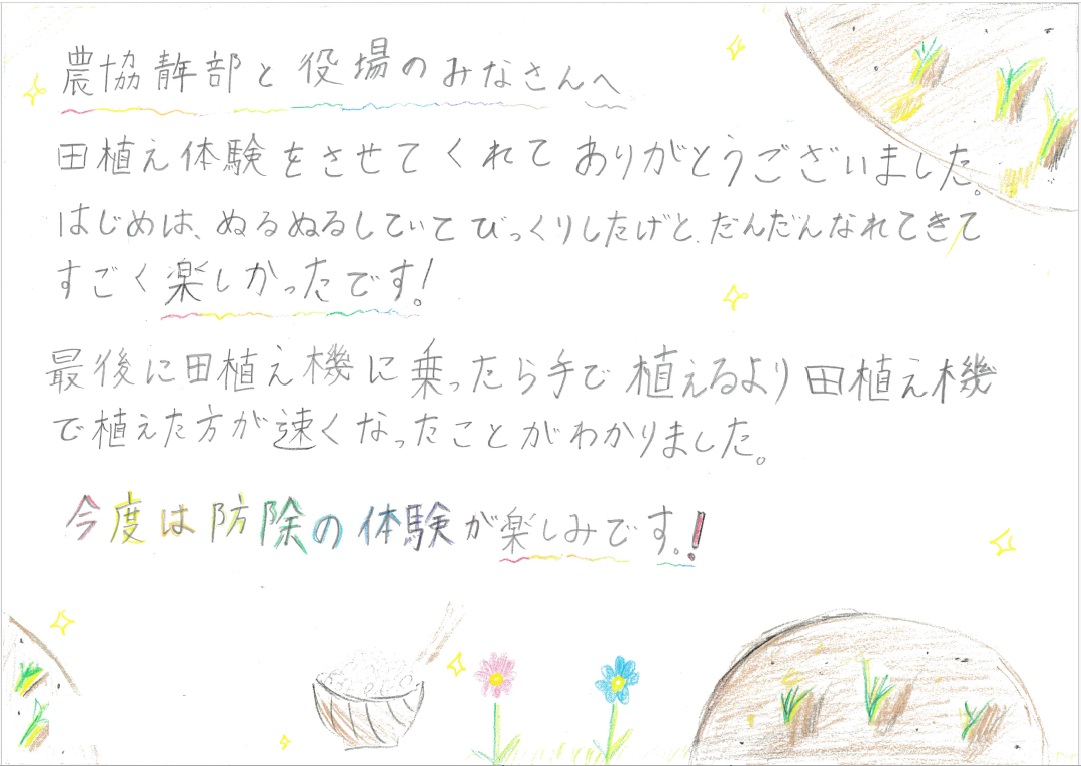 農協青年部と役場のみなさんへ
田植え体験をさせてくれてありがとうございました。
はじめは、ぬるぬるしていてびっくりしたけど、だんだんなれてきて
すごく楽しかったです!
最後に田植え機に乗ったら手で植えるより田植え機
で植えた方が速くなったことがわかりました。
今度は防除の体験が楽しみです。!